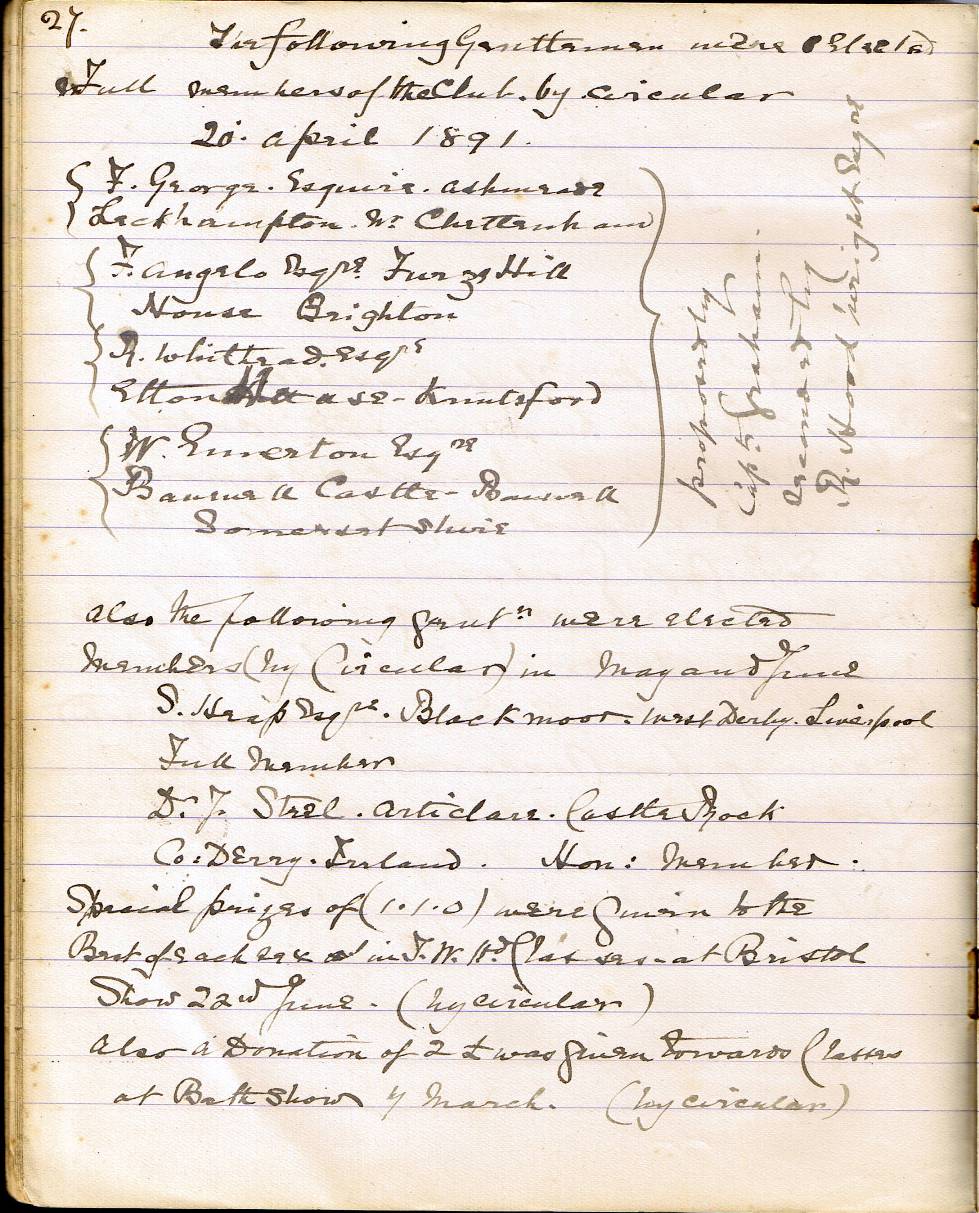 27.
The following Gentlemen were Elected
Full members of the Club. by circular
20. april 1891.
F. George. Esquire. ashmeade
Leckhampton. Nr Cheltenham
F. angelo Esqre. Furze Hill
House Brighton
R. Whitehead. Esqre
Elton House - Knutsford
W. Emerton Esqre
Banwell Castle - Banwell
Somersetshire
proposed by
Capt. Graham.
seconded by
R. Hood Wright Esqre
also the following gentn were elected
members (by Circular) in May and June
S. Heap Esqre. Blackmoor. West Derby. Liverpool
Full Member
D. J. Steel. articlare. Castle Rock
Co: Derry. Ireland. Hon: Member.
Special prizes of (1.1.0) were given to the
Best of each sex in I. W. Hd Classes - at Bristol
Show 22nd June. (by circular)
also a Donation of 2 £ was given towards Classes
at Bath Show 4 March. (by circular)